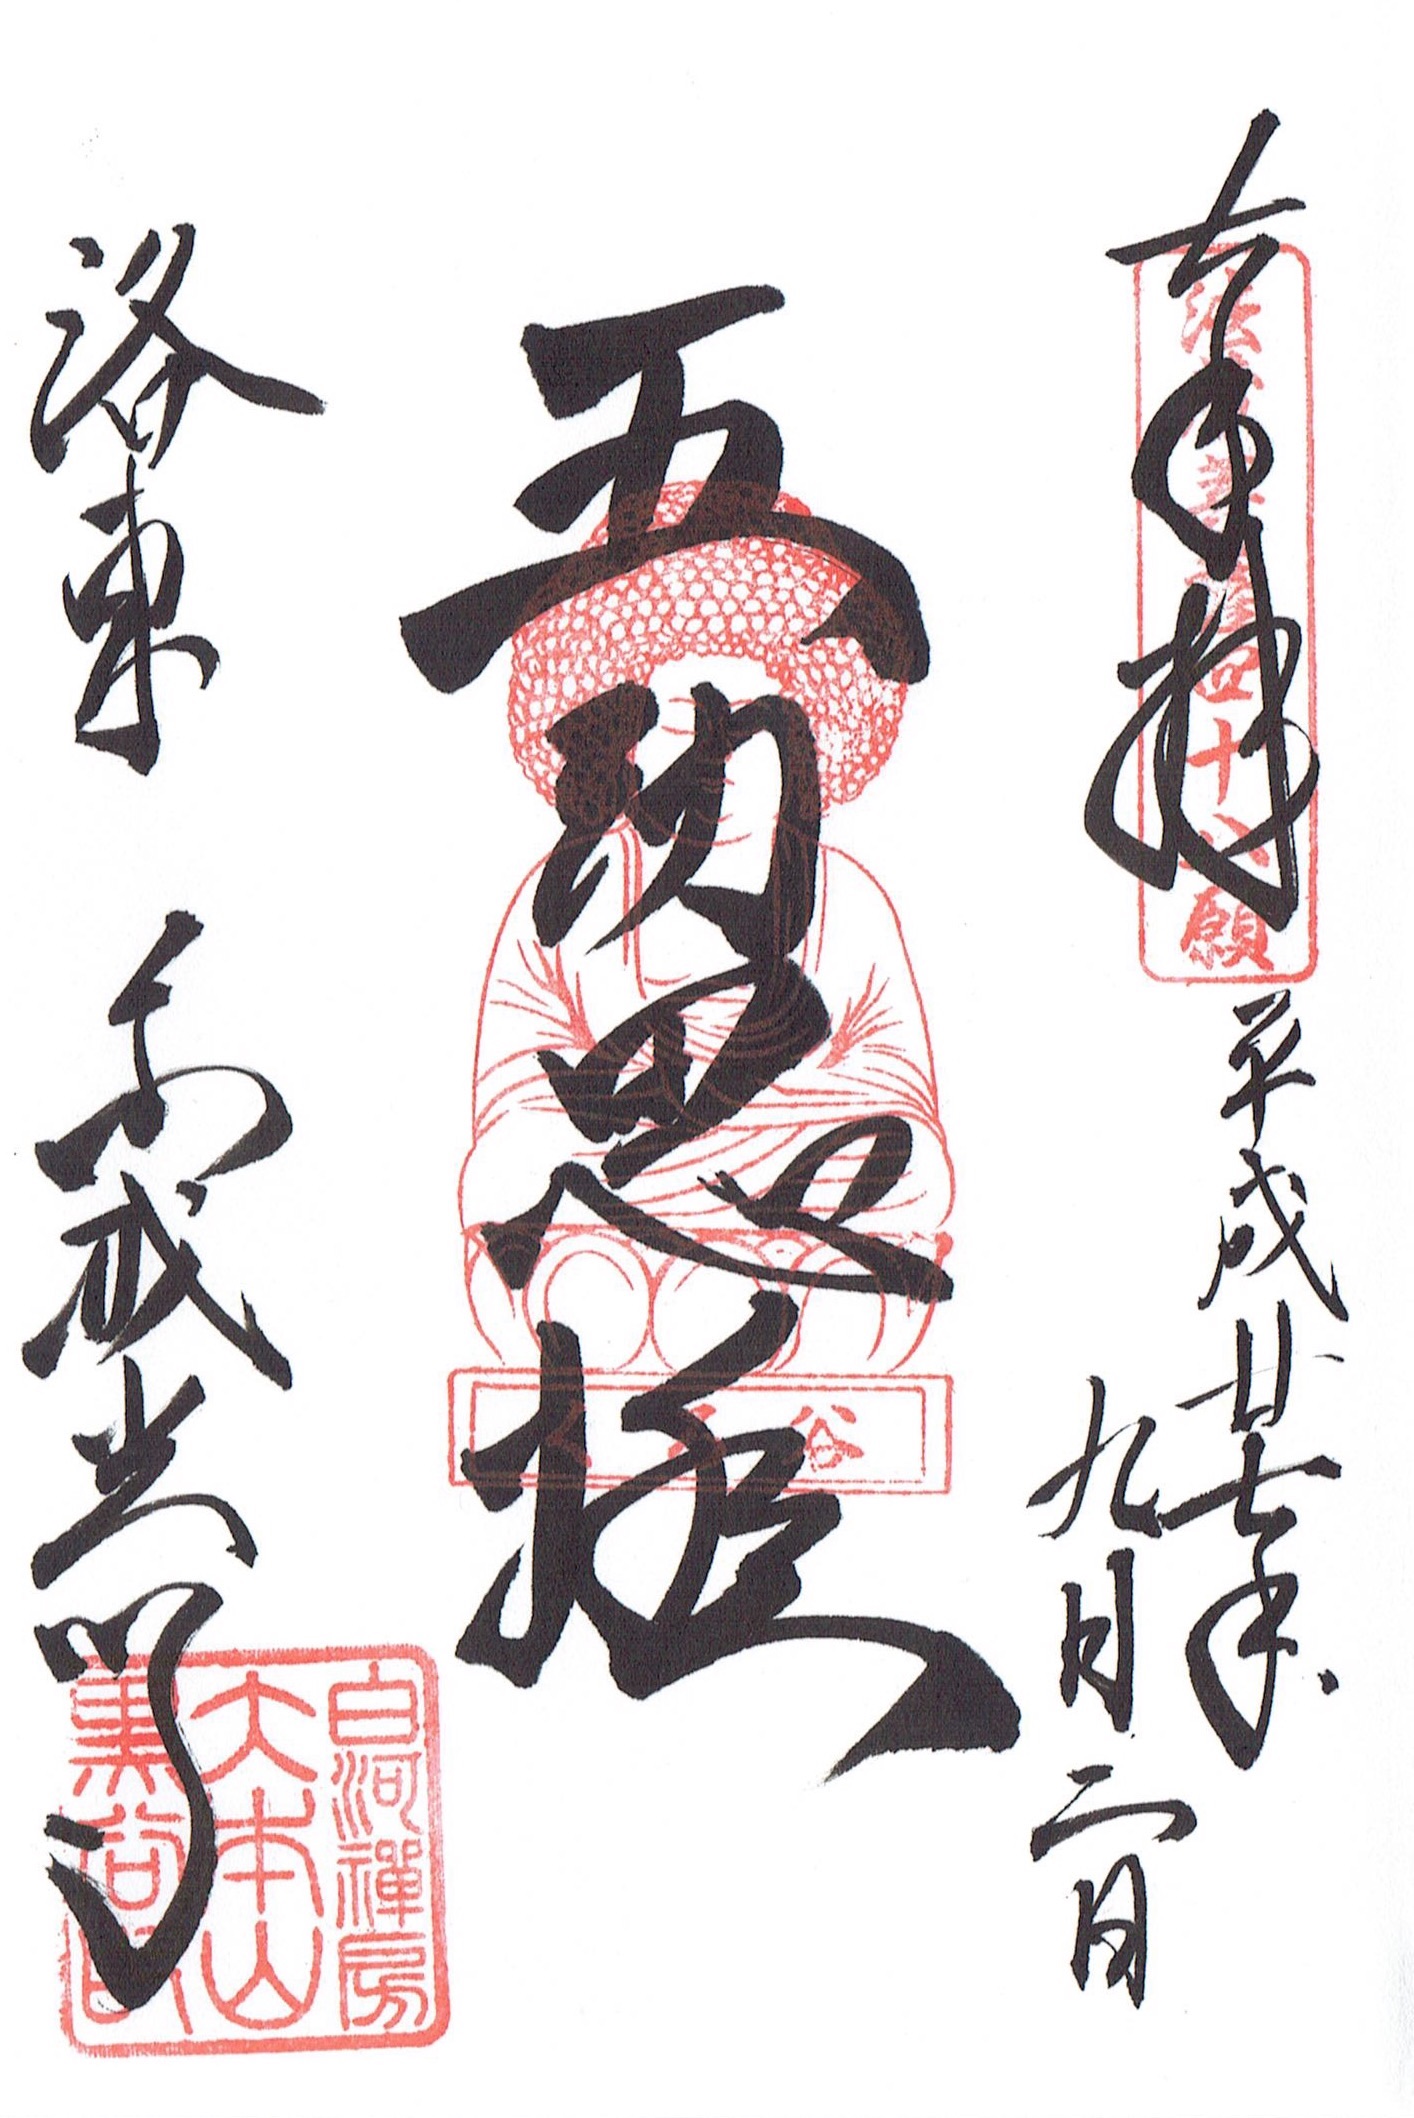 奉拝
法蔵菩薩四十八願
平成廿七年
九月二日
五劫思惟
くろ谷
洛東 金戒光明寺
白河禪房
大本山
黒谷